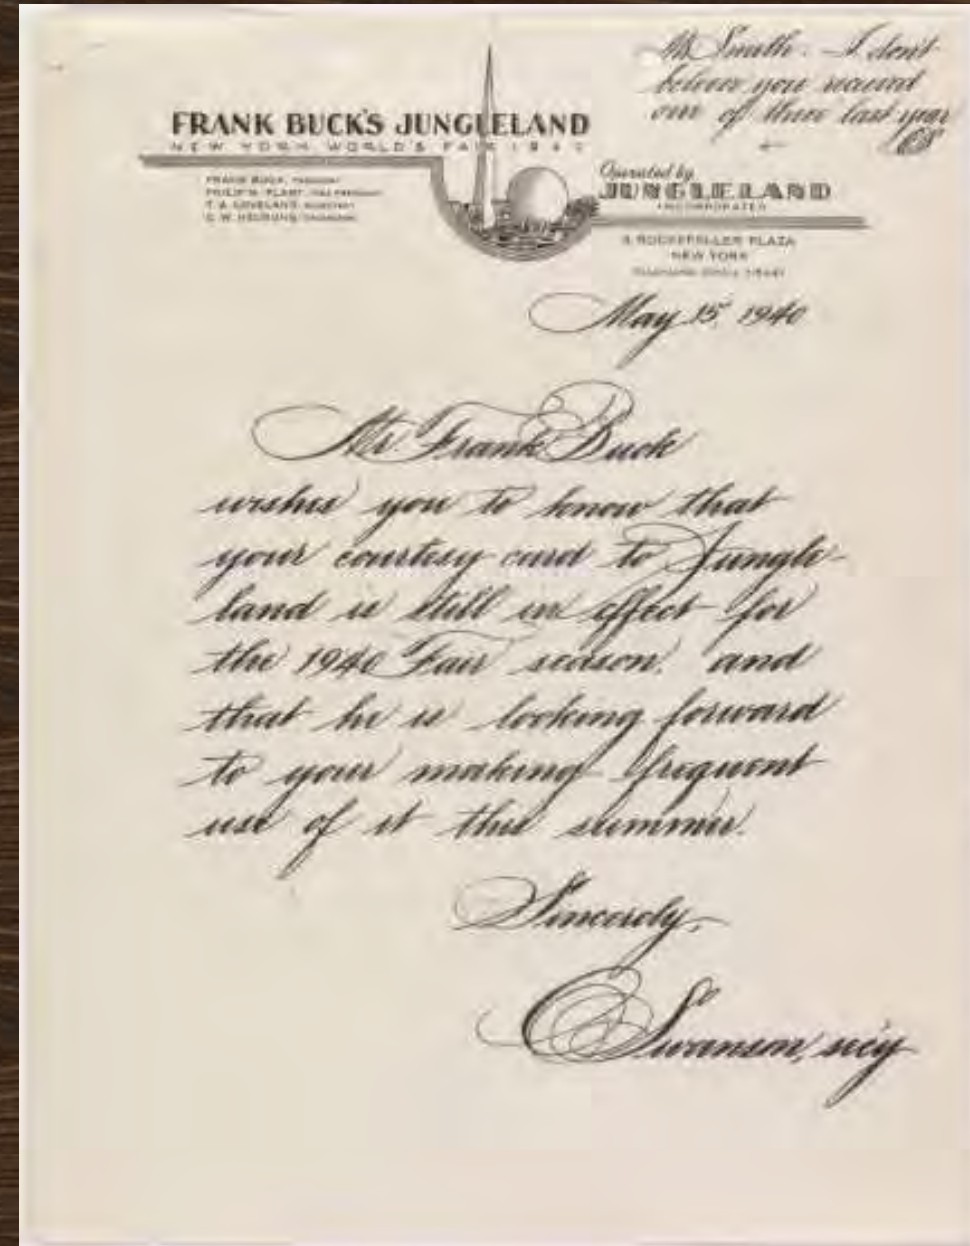 Mr. Smith - I don't
believe you received
one of these last year
CS
FRANK BUCK'S JUNGLELAND
NEW YORK WORLD'S FAIR 1940
FRANK BUCK, PRESIDENT
PHILIP M. PLANT, VICE PRESIDENT
T. A. LOVELAND, SECRETARY
Operated by
JUNGLELAND
INCORPORATED
ROCKEFELLER PLAZA
NEW YORK
May 15, 1940
Mr. Frank Buck
wishes you to know that
your courtesy card to Jungle-
land is still in effect for
the 1940 Fair season, and
that he is looking forward
to your making frequent
use of it this summer.
Sincerely,
C Swanson, sec'y